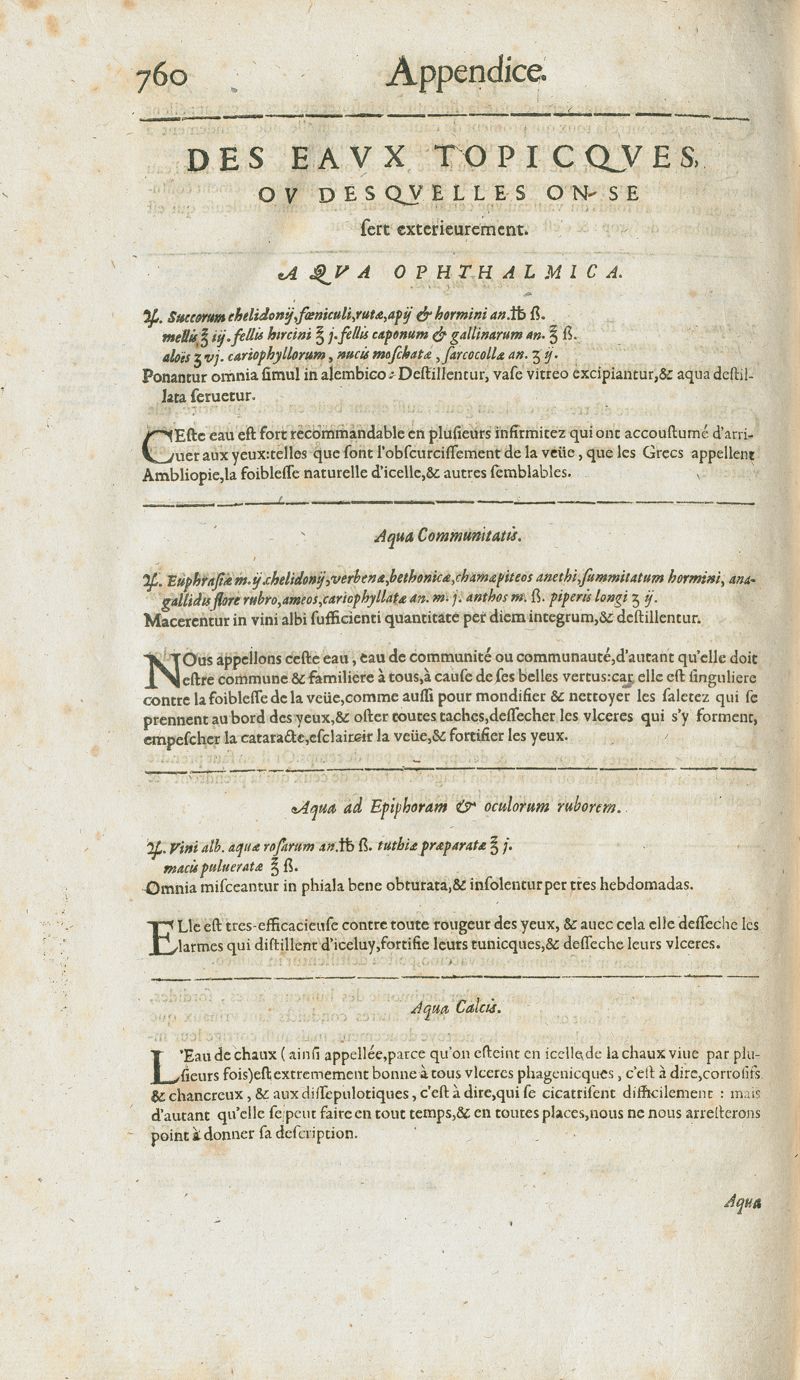 760 Appendice.
DES EAVX TOPICQVES,
OV DESQVELLES ON SE
ſert exterieurement.
AQVA OPHTHALMICA.
℞. Succorum chelidonij, fœniculi, rutæ, apij & hormini an. ℔ ß.
mellis ℥ iij. fellis hircini ℥ j. fellis caponum & gallinarum an. ℥ ß.
aloës ʒ vj. cariophyllorum, nucis moſchatæ, ſarcocollæ an. ʒ ij.
Ponantur omnia ſimul in alembico: Deſtillentur, vaſe vitreo excipiantur, & aqua deſtil-
lata ſeruetur.
CEſte eau eſt fort recommandable en pluſieurs infirmitez qui ont accouſtumé d'arri-
uer aux yeux: telles que ſont l'obſcurciſſement de la veüe, que les Grecs appellent
Ambliopie, la foibleſſe naturelle d'icelle, & autres ſemblables.
Aqua Communitatis.
℞. Euphraſiæ m. ij. chelidonij, verbenæ, bethonicæ, chamæpiteos anethi, ſummitatum hormini, ana-
gallidis flore rubro, ameos, cariophyllatæ an. m. j. anthos m. ß. piperis longi ʒ ij.
Macerentur in vini albi ſufficienti quantitate per diem integrum, & deſtillentur.
NOus appellons ceſte eau, eau de communité ou communauté, d'autant qu'elle doit
eſtre commune & familiere à tous, à cauſe de ſes belles vertus: car elle eſt ſinguliere
contre la foibleſſe de la veüe, comme auſſi pour mondifier & nettoyer les ſaletez qui ſe
prennent au bord des yeux, & oſter toutes taches, deſſecher les vlceres qui s'y forment,
empeſcher la cataracte, eſclaircir la veüe, & fortifier les yeux.
Aqua ad Epiphoram & oculorum ruborem.
℞. Vini alb. aquæ roſarum an. ℔ ß. tuthiæ præparatæ ℥ j.
macis pulueratæ ℥ ß.
Omnia miſceantur in phiala bene obturata, & inſolentur per tres hebdomadas.
ELle eſt tres-efficacieuſe contre toute rougeur des yeux, & auec cela elle deſſeche les
larmes qui diſtillent d'iceluy, fortifie leurs tunicques, & deſſeche leurs vlceres.
Aqua Calcis.
L'Eau de chaux (ainſi appellée, parce qu'on eſteint en icelle de la chaux viue par plu-
ſieurs fois) eſt extremement bonne à tous vlceres phagenicques, c'eſt à dire, corroſifs
& chancreux, & aux diſſepulotiques, c'eſt à dire, qui ſe cicatriſent difficilement: mais
d'autant qu'elle ſe peut faire en tout temps, & en toutes places, nous ne nous arreſterons
point à donner ſa deſcription.
Aqua